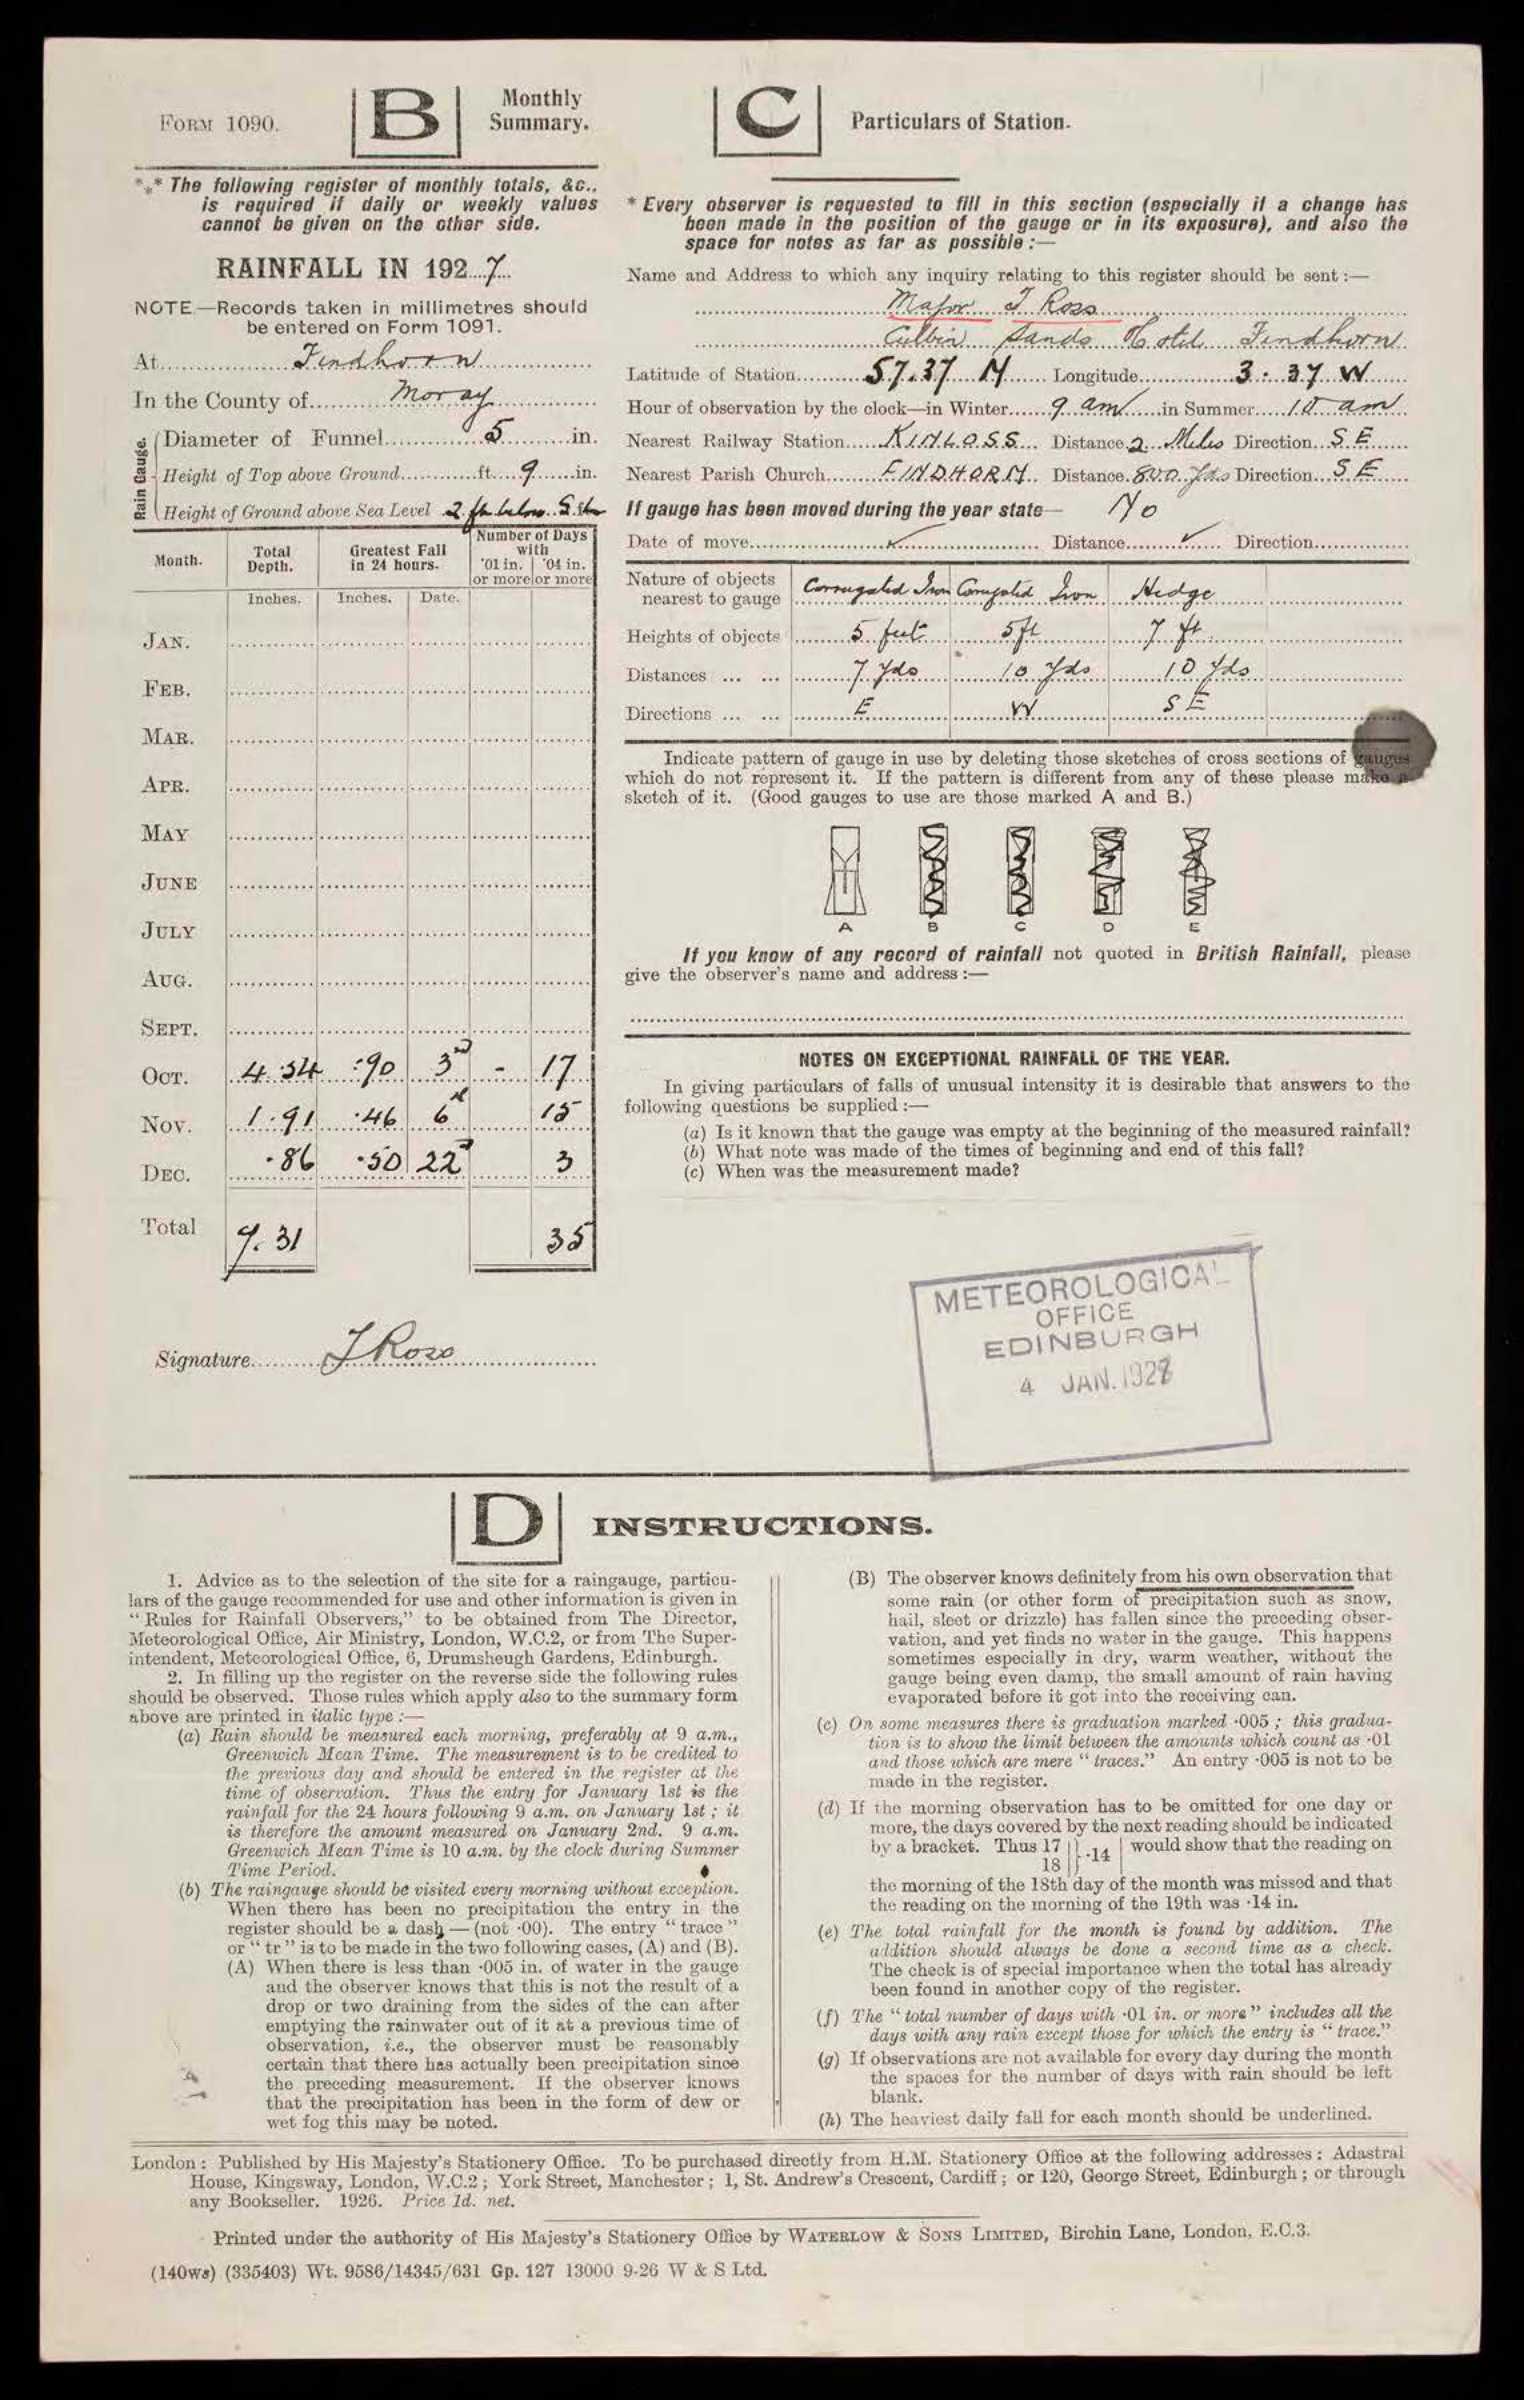 FORM 1090.
B
Monthly
Summary.
*** The following register of monthly totals, &c.,
is required if daily or weekly values
cannot be given on the other side.
RAINFALL IN 1927
NOTE.—Records taken in millimetres should
be entered on Form 1091.
At Findhorn
In the County of Moray
Rain Gauge.
Diameter of Funnel 5 in.
Height of Top above Ground ft. 9 in.
Height of Ground above Sea Level 2 ft below
Month. Total Depth. Greatest Fall in 24 hours. Number of Days with
·01 in. or more ·04 in. or more
Inches. Inches. Date.
JAN.
FEB.
MAR.
APR.
MAY
JUNE
JULY
AUG.
SEPT.
OCT. 4.54 .90 3rd - 17
NOV. 1.91 .46 6th 15
DEC. .86 .50 22nd 3
Total 7.31 35
Signature J Ross
C
Particulars of Station.
* Every observer is requested to fill in this section (especially if a change has
been made in the position of the gauge or in its exposure), and also the
space for notes as far as possible :—
Name and Address to which any inquiry relating to this register should be sent :—
Major J Ross
Culbin Sands Hotel Findhorn
Latitude of Station 57.37 N Longitude 3.37 W
Hour of observation by the clock—in Winter 9 am in Summer 10 am
Nearest Railway Station KINLOSS Distance 2 Miles Direction S E
Nearest Parish Church FINDHORN Distance 800 Yds Direction S E
If gauge has been moved during the year state— No
Date of move Distance Direction
Nature of objects nearest to gauge Corrugated Iron Corrugated Iron Hedge
Heights of objects 5 feet 5 ft 7 ft.
Distances ... ... 7 Yds 10 Yds 10 Yds
Directions ... ... E W S E
Indicate pattern of gauge in use by deleting those sketches of cross sections of gauges
which do not represent it. If the pattern is different from any of these please make a
sketch of it. (Good gauges to use are those marked A and B.)
A B C D E
If you know of any record of rainfall not quoted in British Rainfall, please
give the observer's name and address :—
NOTES ON EXCEPTIONAL RAINFALL OF THE YEAR.
In giving particulars of falls of unusual intensity it is desirable that answers to the
following questions be supplied :—
(a) Is it known that the gauge was empty at the beginning of the measured rainfall?
(b) What note was made of the times of beginning and end of this fall?
(c) When was the measurement made?
METEOROLOGICAL
OFFICE
EDINBURGH
4 JAN. 1928
D
INSTRUCTIONS.
1. Advice as to the selection of the site for a raingauge, particu-
lars of the gauge recommended for use and other information is given in
"Rules for Rainfall Observers," to be obtained from The Director,
Meteorological Office, Air Ministry, London, W.C.2, or from The Super-
intendent, Meteorological Office, 6, Drumsheugh Gardens, Edinburgh.
2. In filling up the register on the reverse side the following rules
should be observed. Those rules which apply also to the summary form
above are printed in italic type :—
(a) Rain should be measured each morning, preferably at 9 a.m.,
Greenwich Mean Time. The measurement is to be credited to
the previous day and should be entered in the register at the
time of observation. Thus the entry for January 1st is the
rainfall for the 24 hours following 9 a.m. on January 1st ; it
is therefore the amount measured on January 2nd. 9 a.m.
Greenwich Mean Time is 10 a.m. by the clock during Summer
Time Period.
(b) The raingauge should be visited every morning without exception.
When there has been no precipitation the entry in the
register should be a dash — (not ·00). The entry "trace"
or "tr" is to be made in the two following cases, (A) and (B).
(A) When there is less than ·005 in. of water in the gauge
and the observer knows that this is not the result of a
drop or two draining from the sides of the can after
emptying the rainwater out of it at a previous time of
observation, i.e., the observer must be reasonably
certain that there has actually been precipitation since
the preceding measurement. If the observer knows
that the precipitation has been in the form of dew or
wet fog this may be noted.
(B) The observer knows definitely from his own observation that
some rain (or other form of precipitation such as snow,
hail, sleet or drizzle) has fallen since the preceding obser-
vation, and yet finds no water in the gauge. This happens
sometimes especially in dry, warm weather, without the
gauge being even damp, the small amount of rain having
evaporated before it got into the receiving can.
(c) On some measures there is graduation marked ·005 ; this gradua-
tion is to show the limit between the amounts which count as ·01
and those which are mere "traces." An entry ·005 is not to be
made in the register.
(d) If the morning observation has to be omitted for one day or
more, the days covered by the next reading should be indicated
by a bracket. Thus 17 18 } ·14 would show that the reading on
the morning of the 18th day of the month was missed and that
the reading on the morning of the 19th was ·14 in.
(e) The total rainfall for the month is found by addition. The
addition should always be done a second time as a check.
The check is of special importance when the total has already
been found in another copy of the register.
(f) The "total number of days with ·01 in. or more" includes all the
days with any rain except those for which the entry is "trace."
(g) If observations are not available for every day during the month
the spaces for the number of days with rain should be left
blank.
(h) The heaviest daily fall for each month should be underlined.
London : Published by His Majesty's Stationery Office. To be purchased directly from H.M. Stationery Office at the following addresses : Adastral
House, Kingsway, London, W.C.2 ; York Street, Manchester ; 1, St. Andrew's Crescent, Cardiff ; or 120, George Street, Edinburgh ; or through
any Bookseller. 1926. Price 1d. net.
Printed under the authority of His Majesty's Stationery Office by WATERLOW & SONS LIMITED, Birchin Lane, London, E.C.3.
(140ws) (335403) Wt. 9586/14345/631 Gp. 127 13000 9-26 W & S Ltd.